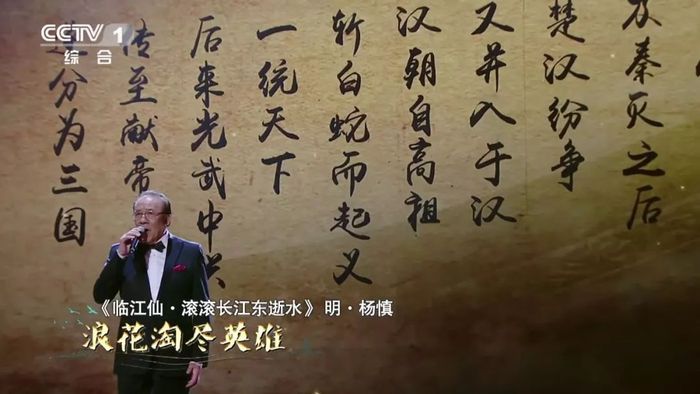 CCTV 1
综合
及秦灭之后
楚汉纷争
又并入于汉
汉朝自高祖
斩白蛇而起义
一统天下
后来光武中兴
传至献帝
分为三国
《临江仙·滚滚长江东逝水》 明·杨慎
浪花淘尽英雄